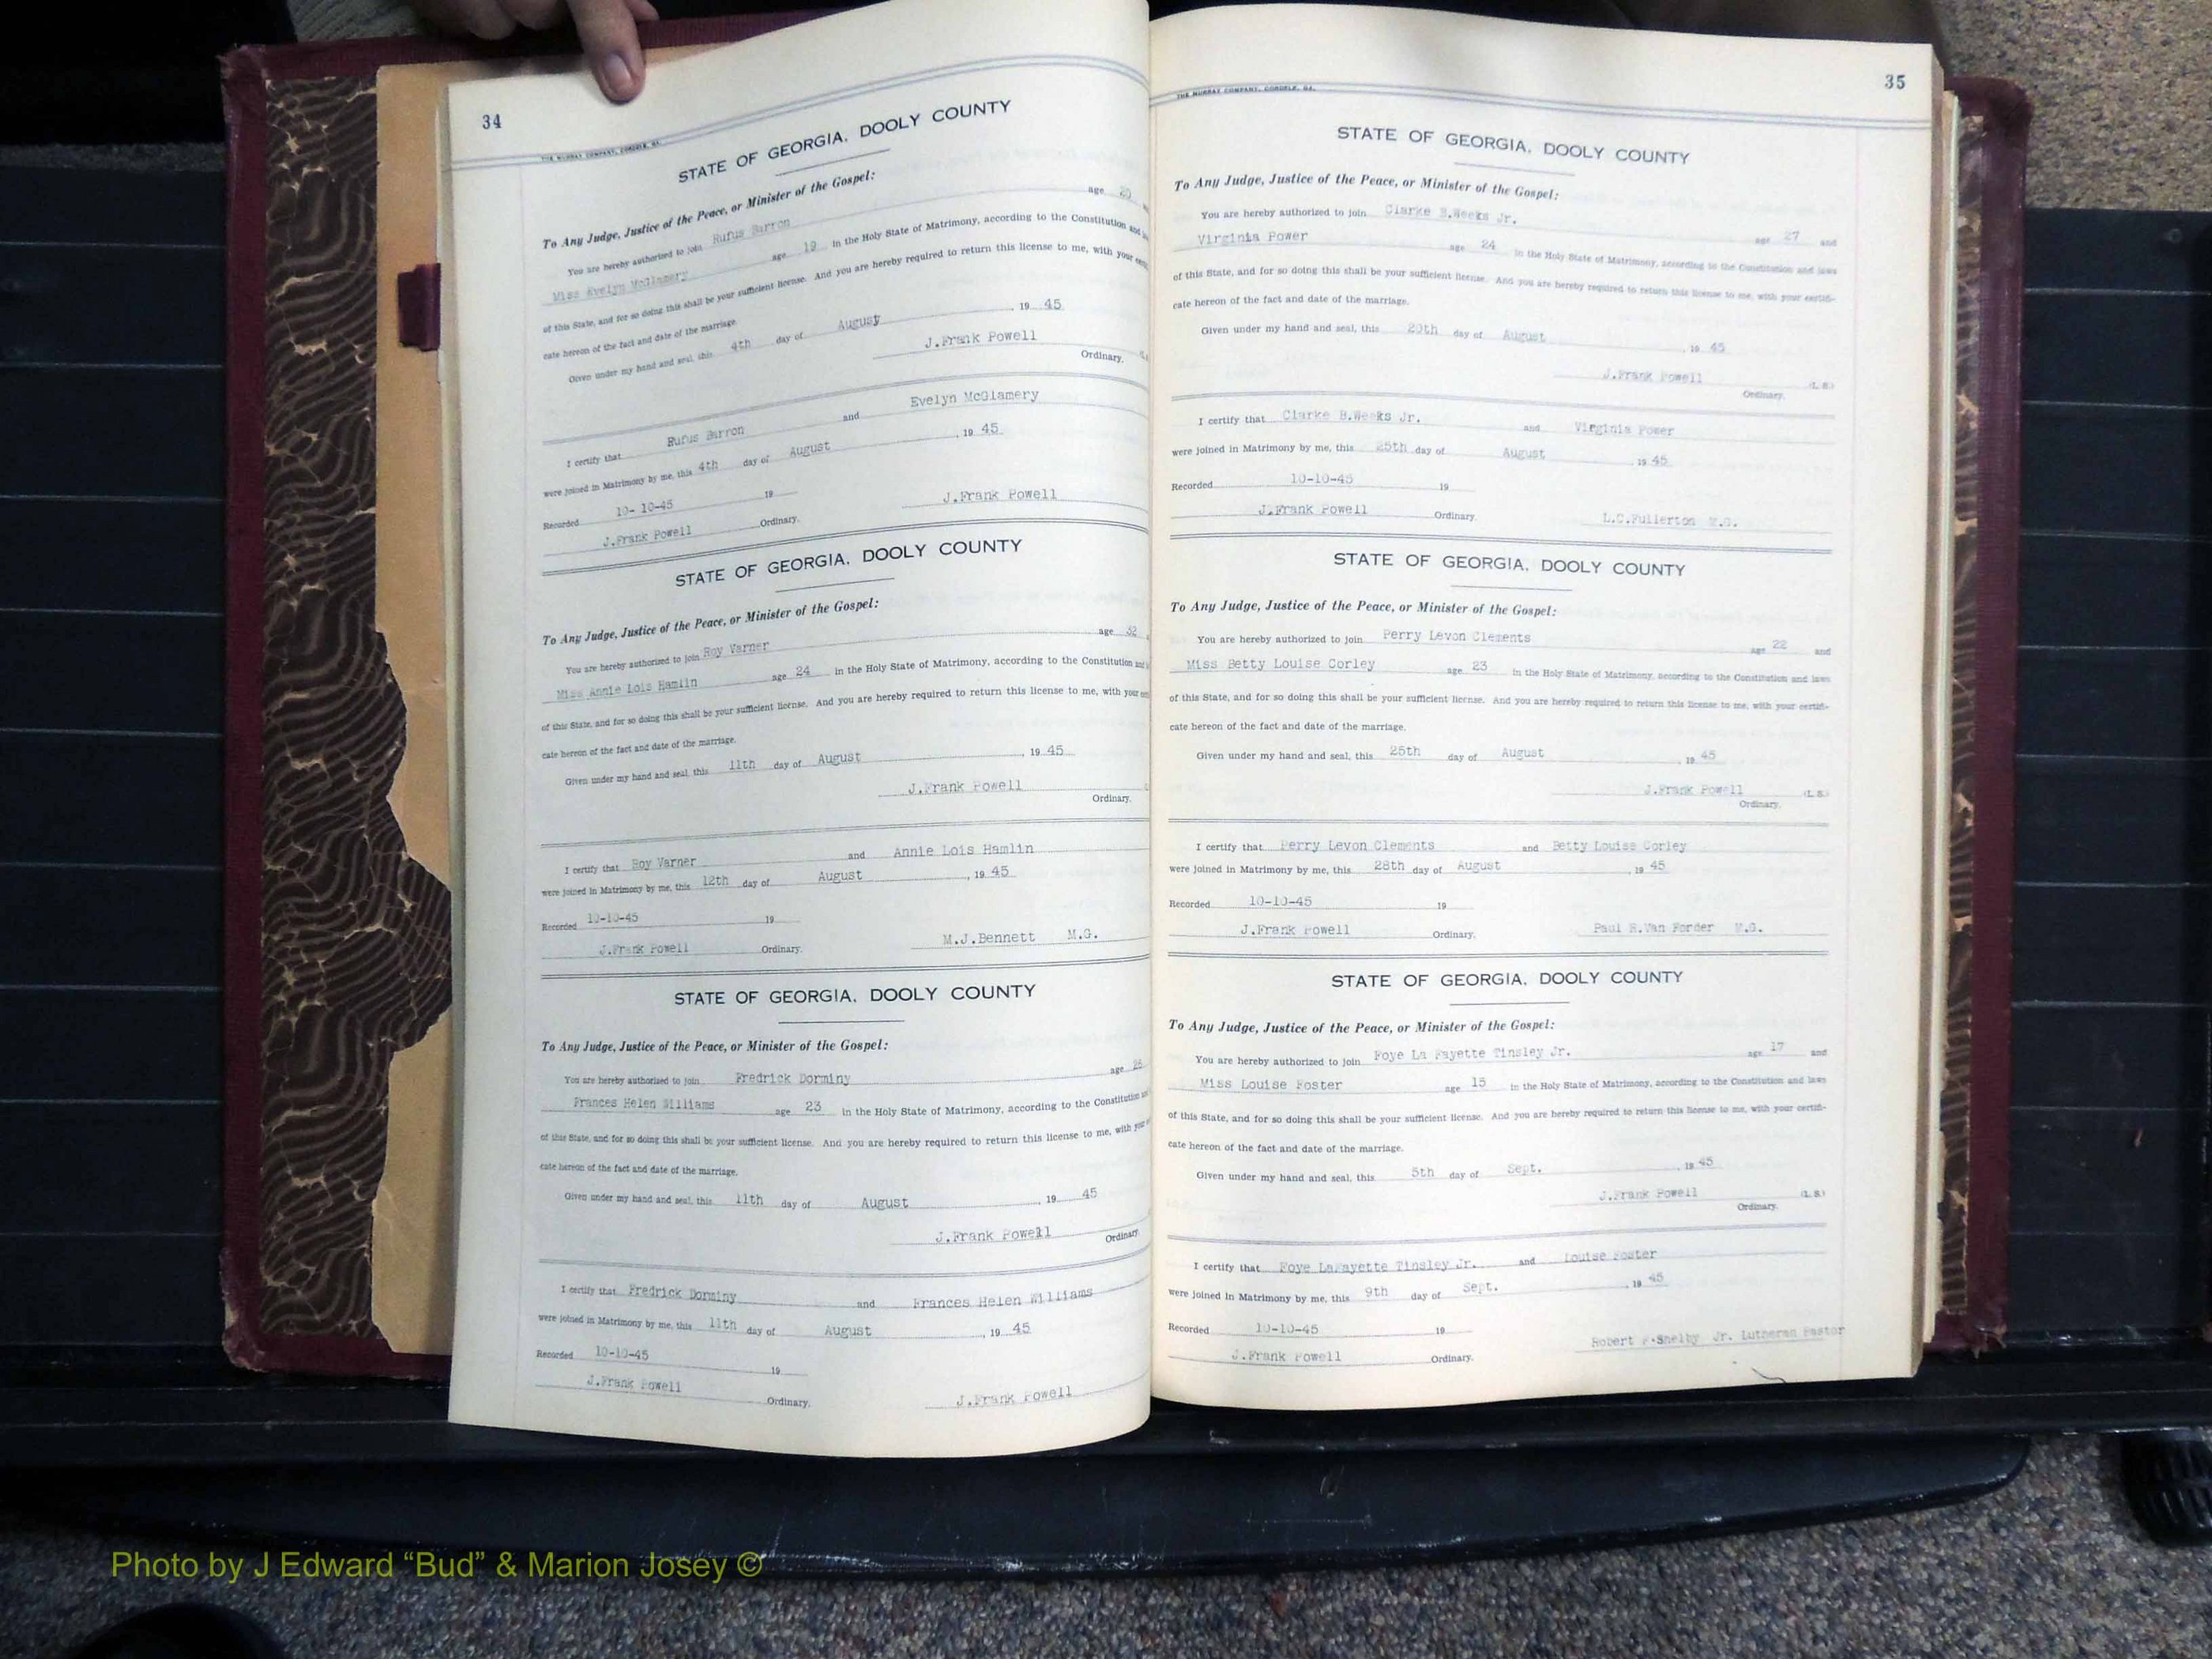 34
THE MURRAY COMPANY, CORDELE, GA.
STATE OF GEORGIA, DOOLY COUNTY
To Any Judge, Justice of the Peace, or Minister of the Gospel:
You are hereby authorized to join Rufus Barron age 20
Miss Evelyn McGlamery age 19 in the Holy State of Matrimony, according to the Constitution and
of this State, and for so doing this shall be your sufficient license. And you are hereby required to return this license to me, with your
cate hereon of the fact and date of the marriage.
Given under my hand and seal, this 4th day of Augusy, 19 45
J.Frank Powell
Ordinary.
I certify that Rufus Barron and Evelyn McGlamery
were joined in Matrimony by me, this 4th day of August, 19 45
Recorded 10- 10-45 19
J.Frank Powell Ordinary. J.Frank Powell
STATE OF GEORGIA, DOOLY COUNTY
To Any Judge, Justice of the Peace, or Minister of the Gospel:
You are hereby authorized to join Roy Varner age 32
Miss Annie Lois Hamlin age 24 in the Holy State of Matrimony, according to the Constitution and
of this State, and for so doing this shall be your sufficient license. And you are hereby required to return this license to me, with your
cate hereon of the fact and date of the marriage.
Given under my hand and seal, this 11th day of August, 19 45
J.Frank Powell
Ordinary.
I certify that Roy Varner and Annie Lois Hamlin
were joined in Matrimony by me, this 12th day of August, 19 45
Recorded 10-10-45 19
J.Frank Powell Ordinary. M.J.Bennett M.G.
STATE OF GEORGIA, DOOLY COUNTY
To Any Judge, Justice of the Peace, or Minister of the Gospel:
You are hereby authorized to join Fredrick Dorminy age
Frances Helen Williams age 23 in the Holy State of Matrimony, according to the Constitution
of this State, and for so doing this shall be your sufficient license. And you are hereby required to return this license to me, with your
cate hereon of the fact and date of the marriage.
Given under my hand and seal, this 11th day of August, 19 45
J.Frank Powell
Ordinary.
I certify that Fredrick Dorminy and Frances Helen Williams
were joined in Matrimony by me, this 11th day of August, 19 45
Recorded 10-10-45 19
J.Frank Powell Ordinary. J.Frank Powell
35
THE MURRAY COMPANY, CORDELE, GA.
STATE OF GEORGIA, DOOLY COUNTY
To Any Judge, Justice of the Peace, or Minister of the Gospel:
You are hereby authorized to join Clarke B.Weeks Jr. age 27 and
Virginia Power age 24 in the Holy State of Matrimony, according to the Constitution and laws
of this State, and for so doing this shall be your sufficient license. And you are hereby required to return this license to me, with your certifi-
cate hereon of the fact and date of the marriage.
Given under my hand and seal, this 20th day of August, 19 45
J.Frank Powell (L. S.)
Ordinary.
I certify that Clarke B.Weeks Jr. and Virginia Power
were joined in Matrimony by me, this 25th day of August, 19 45
Recorded 10-10-45 19
J.Frank Powell Ordinary. L.C.Fullerton M.G.
STATE OF GEORGIA, DOOLY COUNTY
To Any Judge, Justice of the Peace, or Minister of the Gospel:
You are hereby authorized to join Perry Levon Clements age 22 and
Miss Betty Louise Corley age 23 in the Holy State of Matrimony, according to the Constitution and laws
of this State, and for so doing this shall be your sufficient license. And you are hereby required to return this license to me, with your certifi-
cate hereon of the fact and date of the marriage.
Given under my hand and seal, this 25th day of August, 19 45
J.Frank Powell (L. S.)
Ordinary.
I certify that Perry Levon Clements and Betty Louise Corley
were joined in Matrimony by me, this 28th day of August, 19 45
Recorded 10-10-45 19
J.Frank Powell Ordinary. Paul R.Van Forder M.G.
STATE OF GEORGIA, DOOLY COUNTY
To Any Judge, Justice of the Peace, or Minister of the Gospel:
You are hereby authorized to join Foye La Fayette Tinsley Jr. age 17 and
Miss Louise Foster age 15 in the Holy State of Matrimony, according to the Constitution and laws
of this State, and for so doing this shall be your sufficient license. And you are hereby required to return this license to me, with your certifi-
cate hereon of the fact and date of the marriage.
Given under my hand and seal, this 5th day of Sept., 19 45
J.Frank Powell (L. S.)
Ordinary.
I certify that Foye LaFayette Tinsley Jr. and Louise Foster
were joined in Matrimony by me, this 9th day of Sept., 19 45
Recorded 10-10-45 19
J.Frank Powell Ordinary. Robert F.Shelby Jr. Lutheran Pastor
Photo by J Edward “Bud” & Marion Josey ©